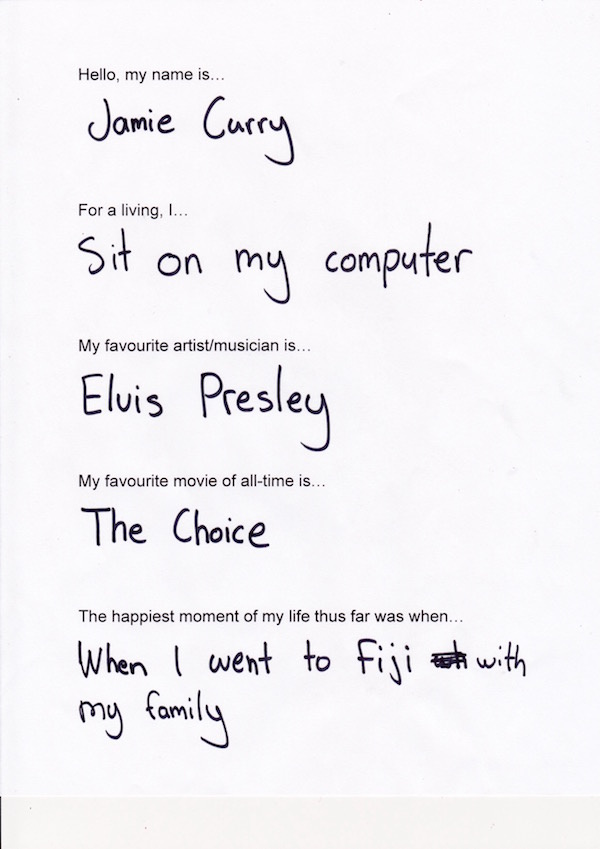 Hello, my name is…
Jamie Curry
For a living, I…
Sit on my computer
My favourite artist/musician is…
Elvis Presley
My favourite movie of all-time is…
The Choice
The happiest moment of my life thus far was when…
When I went to Fiji with
my family